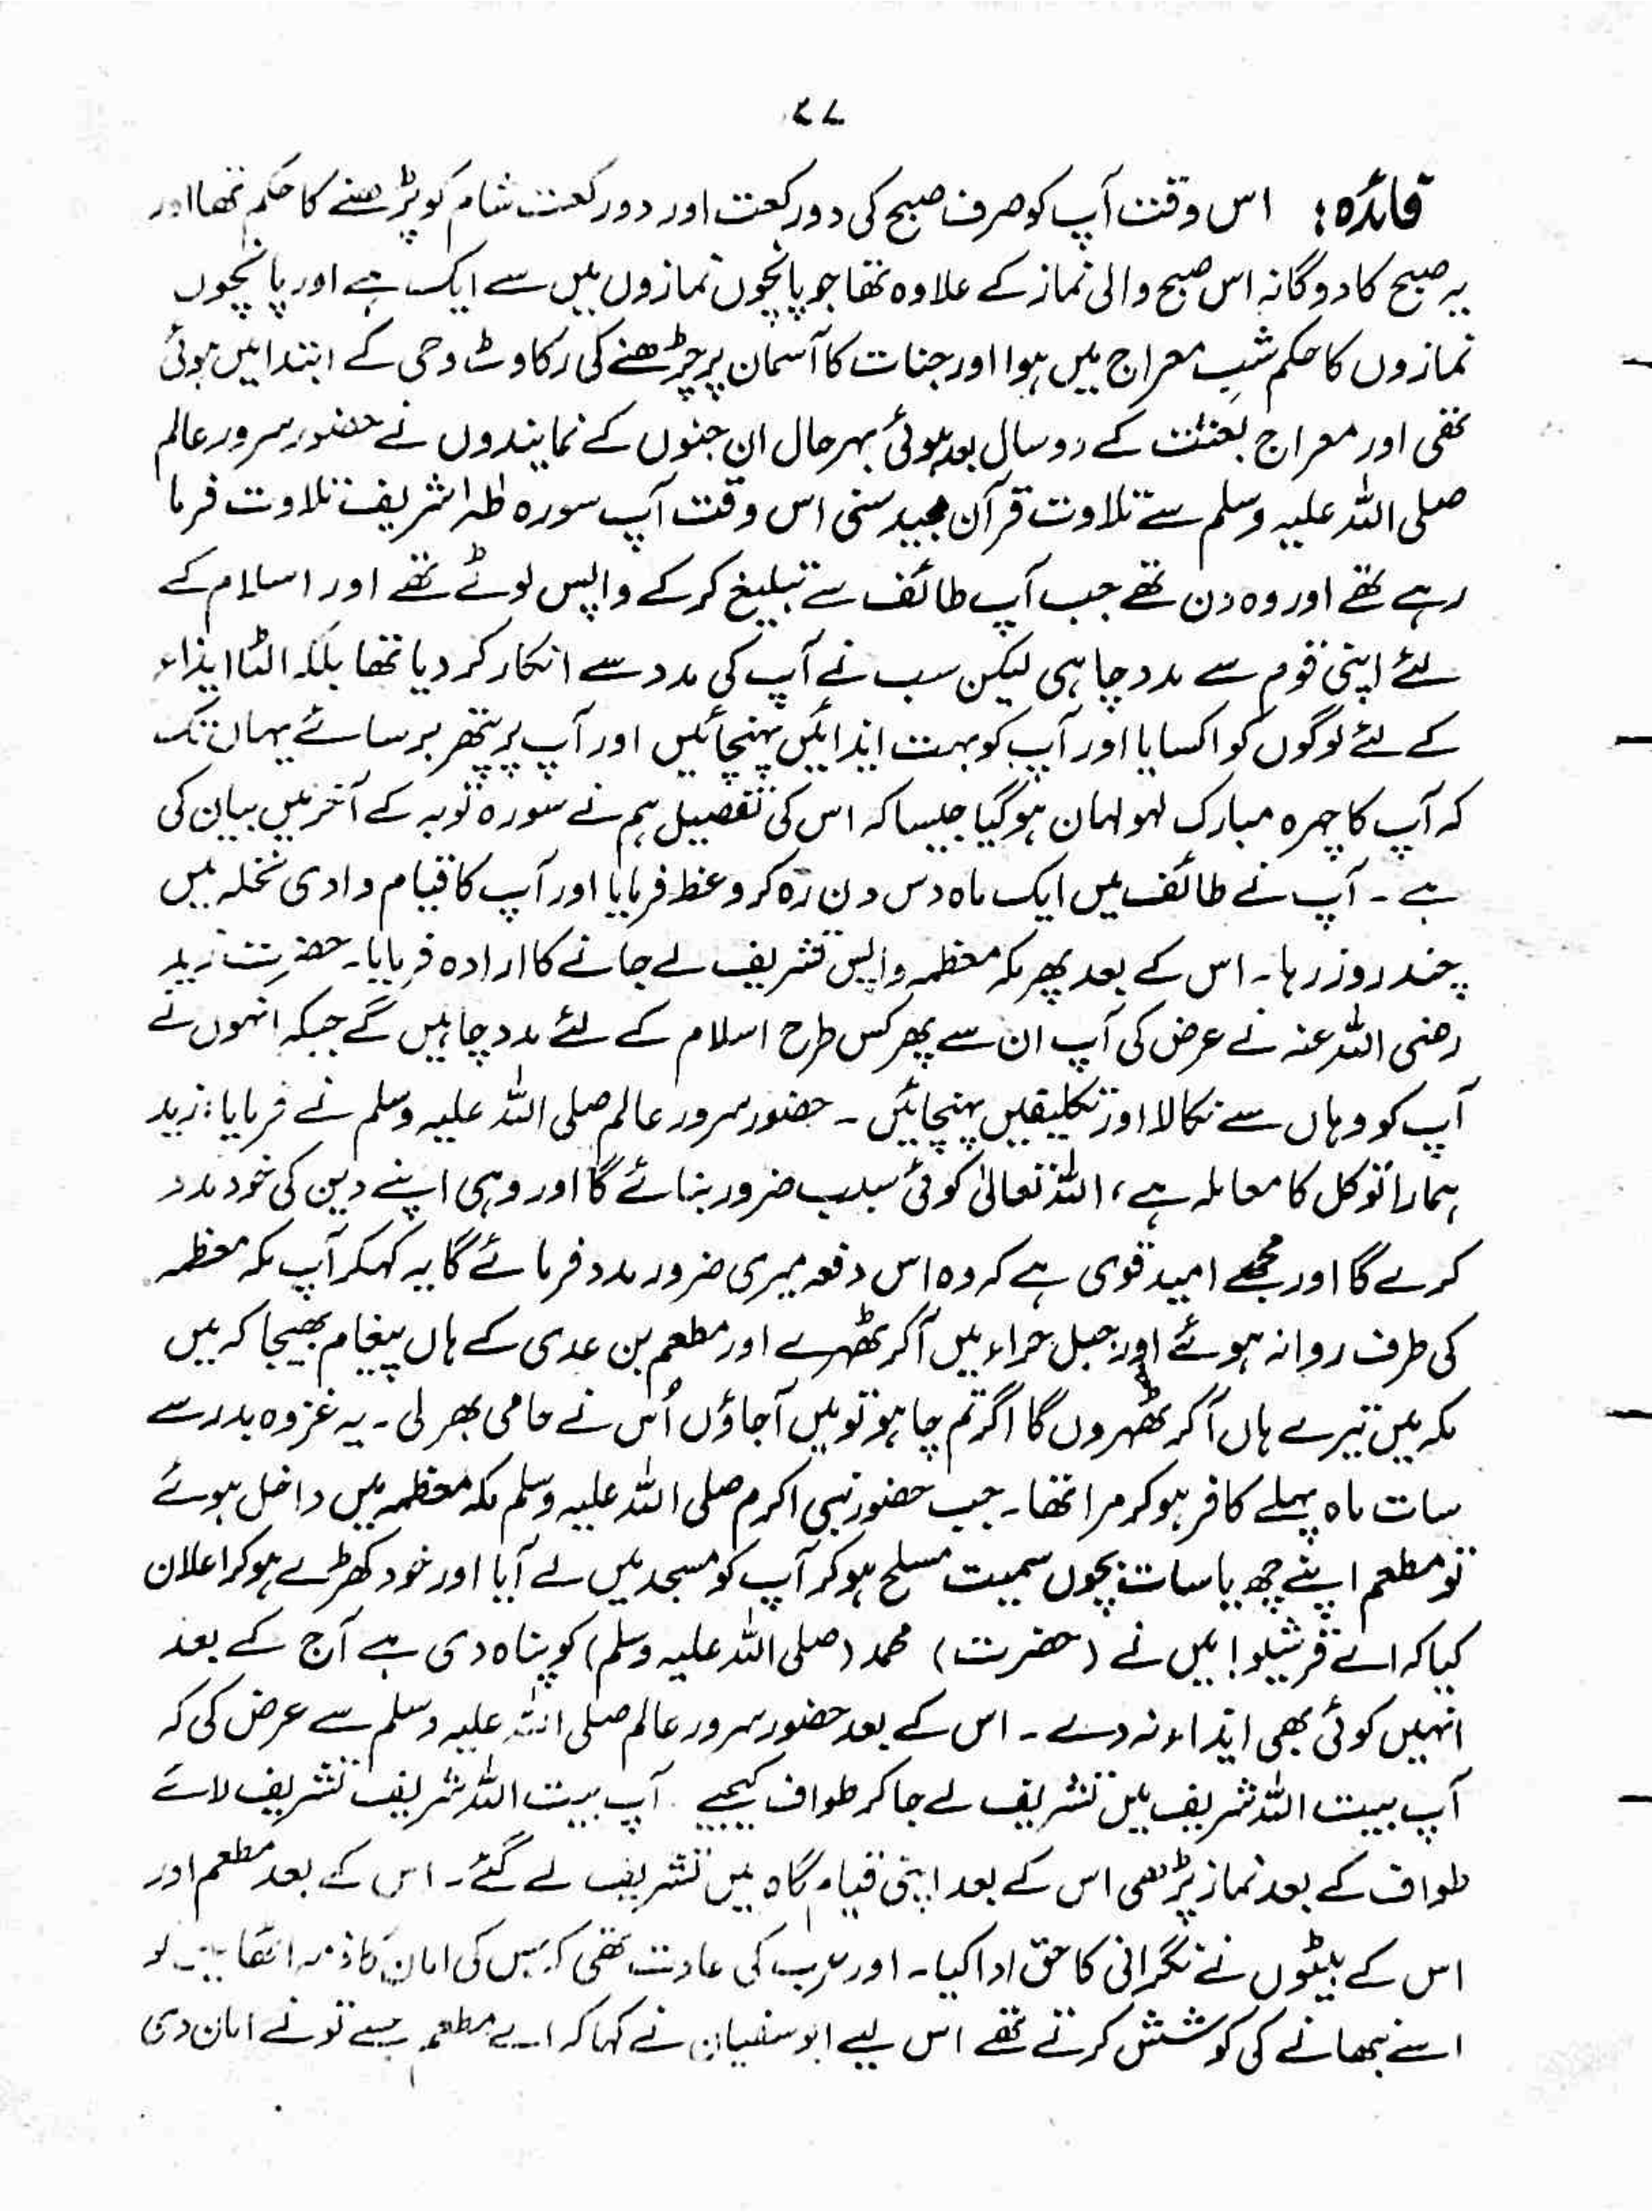 ۴۷
فائدہ: اس وقت آپ کو صرف صبح کی دو رکعت اور دو رکعت شام کو پڑھنے کا حکم تھا اور
یہ صبح کا دوگانہ اس صبح والی نماز کے علاوہ تھا جو پانچوں نمازوں میں سے ایک ہے اور پانچوں
نمازوں کا حکم شبِ معراج میں ہوا اور جنات کا آسمان پر چڑھنے کی رکاوٹ وحی کے ابتدا میں ہوئی
تھی اور معراج بعثت کے دو سال بعد ہوئی بہرحال ان جنوں کے نمایندوں نے حضور سرور عالم
صلی اللہ علیہ وسلم سے تلاوت قرآن مجید سنی اس وقت آپ سورہ طٰہٰ شریف تلاوت فرما
رہے تھے اور وہ دن تھے جب آپ طائف سے تبلیغ کر کے واپس لوٹے تھے اور اسلام کے
لئے اپنی قوم سے مدد چاہی لیکن سب نے آپ کی مدد سے انکار کر دیا تھا بلکہ الٹا ایذاء
کے لئے لوگوں کو اکسایا اور آپ کو بہت ایذائیں پہنچائیں اور آپ پر پتھر برسائے یہاں تک
کہ آپ کا چہرہ مبارک لہولہان ہوگیا جیسا کہ اس کی تفصیل ہم نے سورہ توبہ کے آخر میں بیان کی
ہے ۔ آپ نے طائف میں ایک ماہ دس دن رہ کر وعظ فرمایا اور آپ کا قیام وادی نخلہ میں
چند روز رہا۔ اس کے بعد پھر مکہ معظمہ واپس تشریف لے جانے کا ارادہ فرمایا۔ حضرت زید
رضی اللہ عنہ نے عرض کی آپ ان سے پھر کس طرح اسلام کے لئے مدد چاہیں گے جبکہ انہوں نے
آپ کو وہاں سے نکالا اور تکلیفیں پہنچائیں ۔ حضور سرور عالم صلی اللہ علیہ وسلم نے فرمایا: زید
ہمارا توکل کا معاملہ ہے، اللہ تعالیٰ کوئی سبب ضرور بنائے گا اور وہی اپنے دین کی خود مدد
کرے گا اور مجھے امید قوی ہے کہ وہ اس دفعہ میری ضرور مدد فرمائے گا یہ کہہکر آپ مکہ معظمہ
کی طرف روانہ ہوئے اور جبل حراء میں آکر ٹھہرے اور مطعم بن عدی کے ہاں پیغام بھیجا کہ میں
مکہ میں تیرے ہاں آ کر ٹھہروں گا اگر تم چاہو تو میں آجاؤں اُس نے حامی بھر لی ۔ یہ غزوہ بدر سے
سات ماہ پہلے کافر ہو کر مرا تھا۔ جب حضور نبی اکرم صلی اللہ علیہ وسلم مکہ معظمہ میں داخل ہوئے
تو مطعم اپنے چھ یا سات بچوں سمیت مسلح ہو کر آپ کو مسجد میں لے آیا اور خود کھڑے ہو کر اعلان
کیا کہ اے قریشیو! میں نے (حضرت) محمد (صلی اللہ علیہ وسلم) کو پناہ دی ہے آج کے بعد
انہیں کوئی بھی ایذاء نہ دے ۔ اس کے بعد حضور سرور عالم صلی اللہ علیہ وسلم سے عرض کی کہ
آپ بیت اللہ شریف میں تشریف لے جا کر طواف کیجیے ۔ آپ بیت اللہ شریف تشریف لائے
طواف کے بعد نماز پڑھی اس کے بعد اپنی قیام گاہ میں تشریف لے گئے ۔ اس کے بعد مطعم اور
اس کے بیٹوں نے نگرانی کا حق ادا کیا۔ اور عرب کی عادت تھی کہ جس کی امان کا ذمہ اٹھا لیتے تو
اسے نبھانے کی کوشش کرتے تھے اس لیے ابو سفیان نے کہا کہ اے مطعم جسے تو نے امان دی